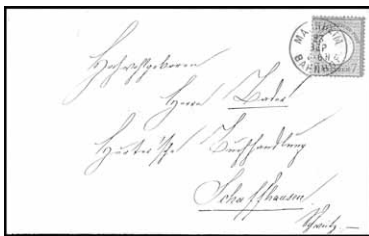 MANNHEIM
BAHNH
Hochwohlgeboren
Herrn Bader
Hurter'sche Buchhandlung
Schaffhausen
Schweiz.